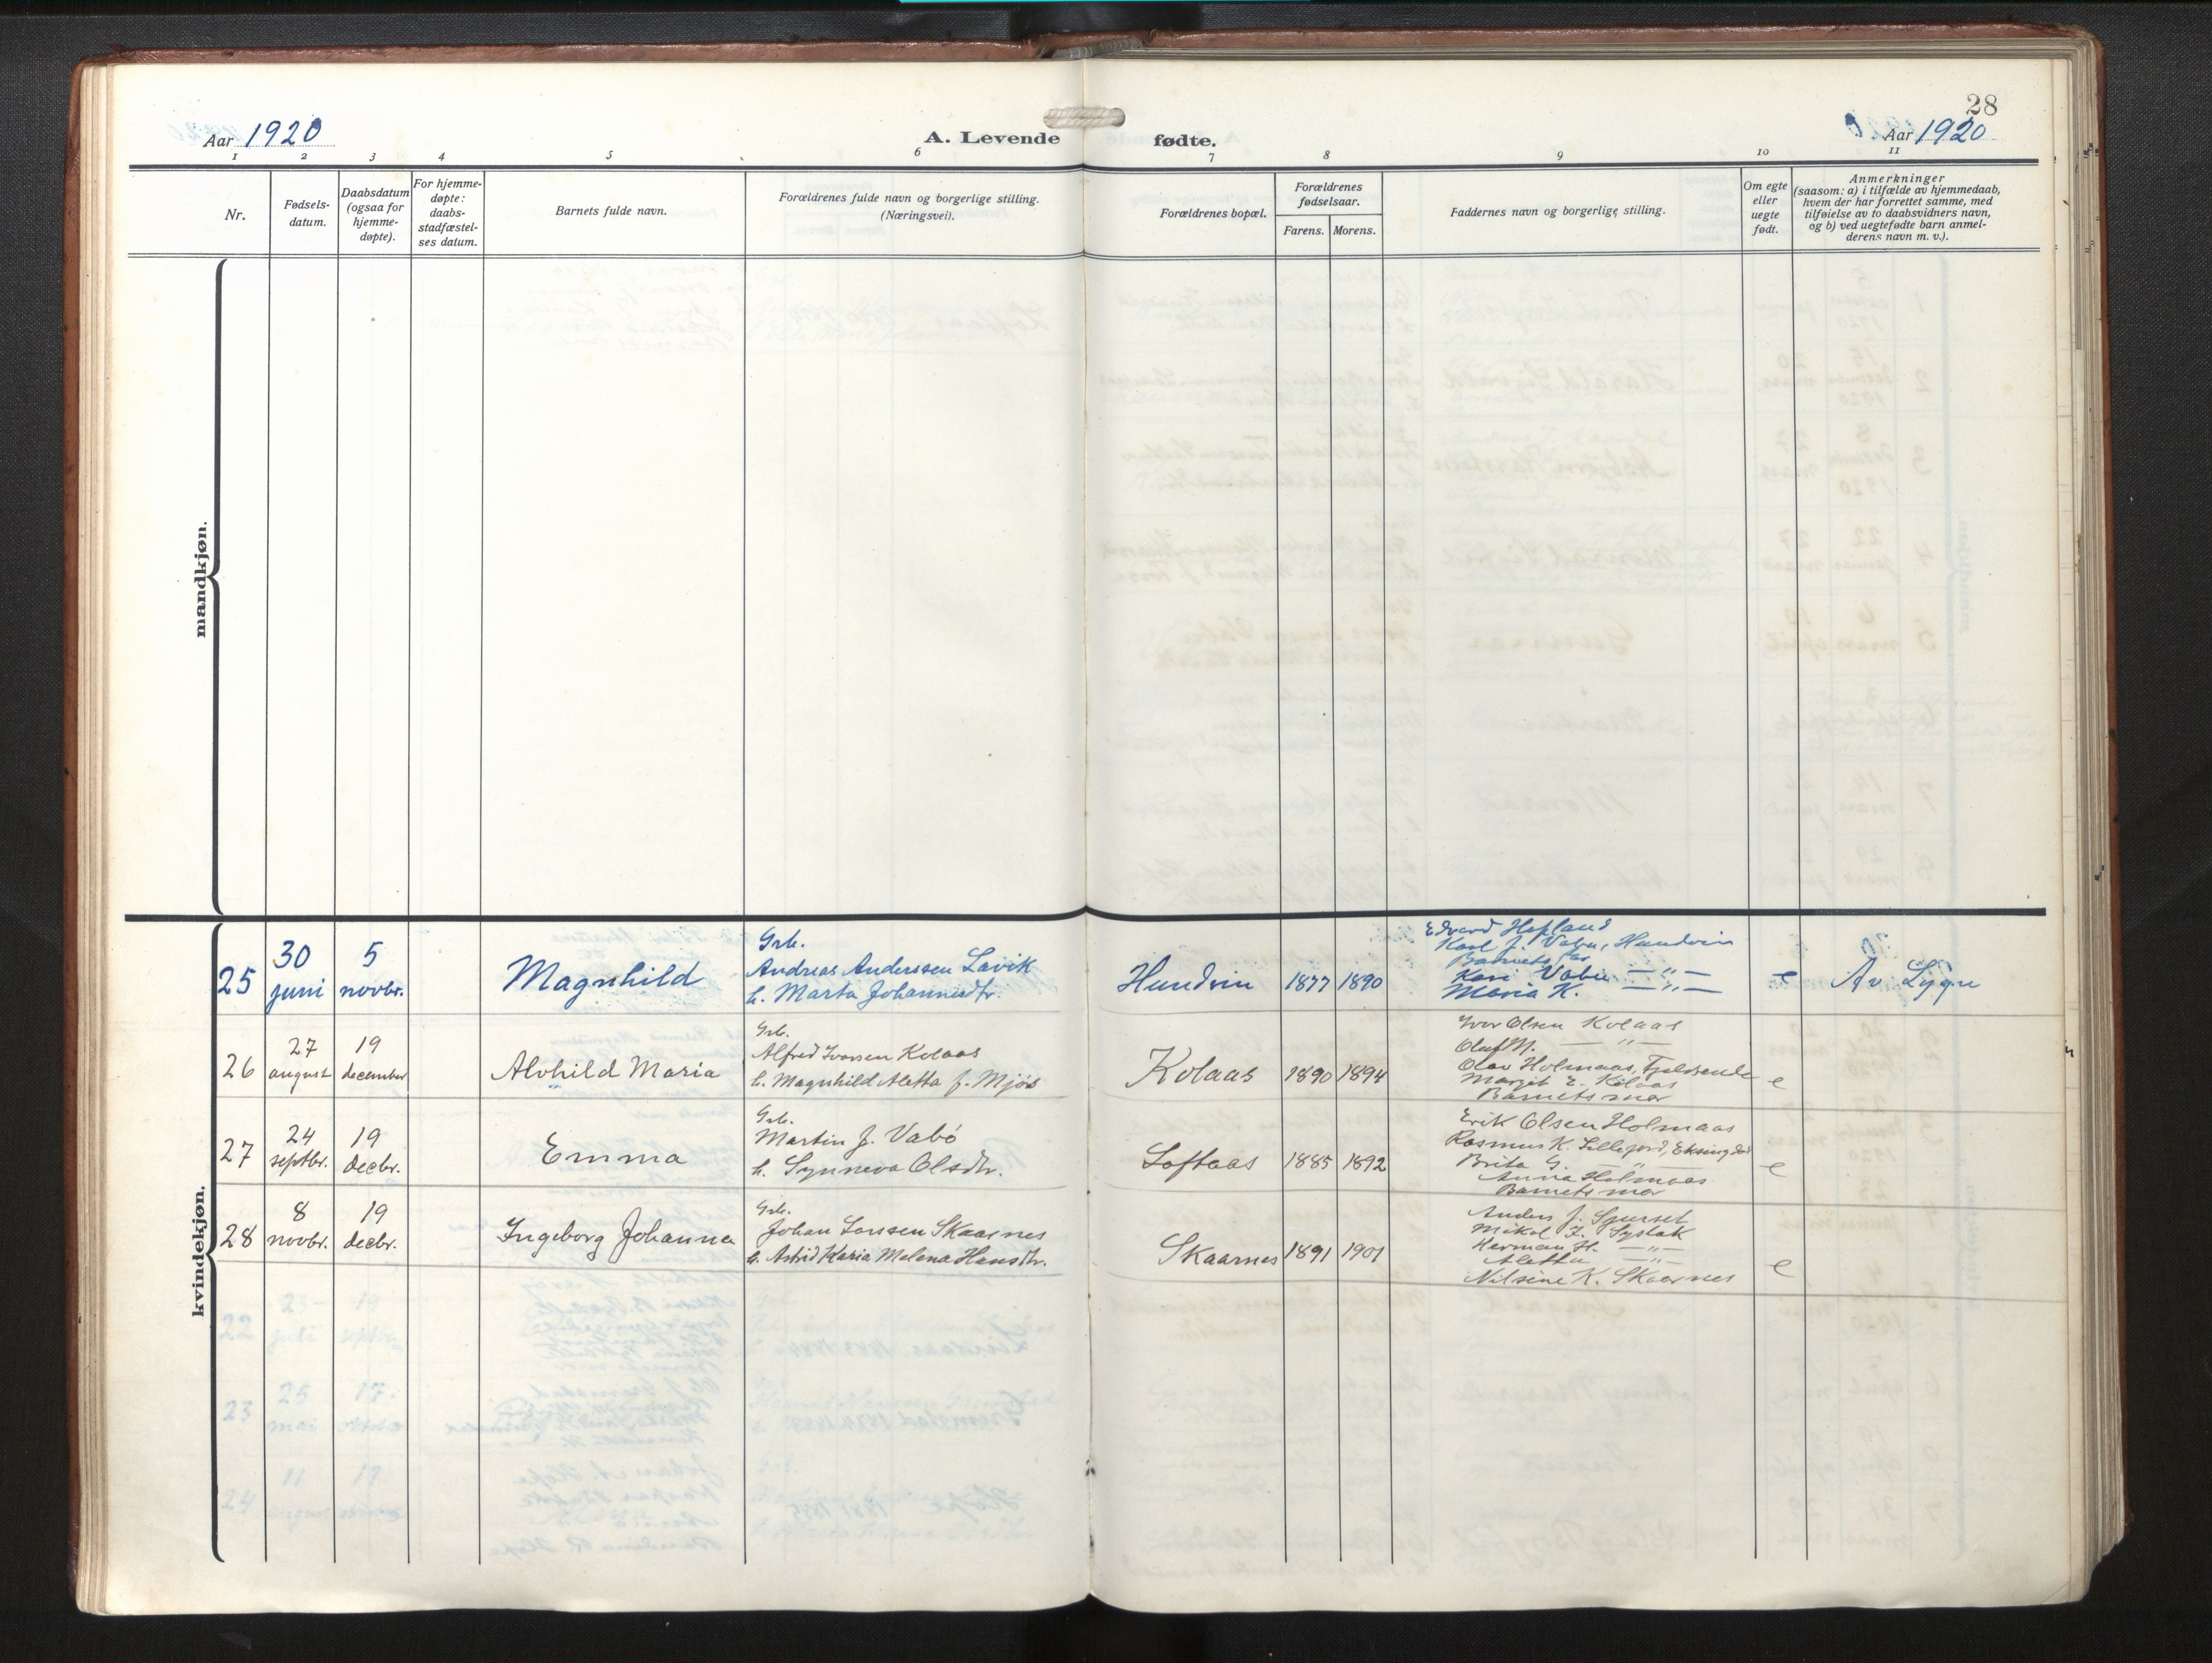 28
Aar 1920
A. Levende fødte.
Aar 1920
1 2 3 4 5 6 7 8 9 10 11
Nr.
Fødsels-
datum.
Daabsdatum
(ogsaa for
hjemme-
døpte).
For hjemme-
døpte:
daabs-
stadfæstel-
ses datum.
Barnets fulde navn.
Forældrenes fulde navn og borgerlige stilling.
(Næringsvei).
Forældrenes bopæl.
Forældrenes
fødselsaar.
Farens. Morens.
Faddernes navn og borgerlige stilling.
Om egte
eller
uegte
født.
Anmerkninger
(saasom: a) i tilfælde av hjemmedaab,
hvem der har forrettet samme, med
tilføielse av to daabsvidners navn,
og b) ved uegtefødte barn anmel-
derens navn m. v.).
mandkjøn.
kvindekjøn.
25
30
juni
5
novbr.
Magnhild
Grb.
Andreas Anderssen Lavik
h. Marta Johannesdtr.
Hundvin
1877 1890
Edvard
Karl J. Vabø, Hundvin
Barnets far
Kari Vabø —„—
Maria K. —„—
e
Av Lygre
26
27
august
19
december
Alvhild Maria
Grb.
Alfred Ivarsen Kolaas
h. Magnhild Aletta f. Mjøs
Kolaas
1890 1894
Ivar Olsen Kolaas
Olaf M. —„—
Olav Holmaas,
Margit E. Kolaas
Barnets mor
e
27
24
septbr.
19
decbr.
Emma
Grb.
Martin J. Vabö
h. Synneva Olsdtr.
Loftaas
1885 1892
Erik Olsen Holmaas
Rasmus K. Lillefjord,
Brita G. —„—
Anna Holmaas
Barnets mor
e
28
8
novbr.
19
decbr.
Ingeborg Johanna
Grb.
Johan Larssen Skaarnes
h. Astrid Karia Malena Hansdtr.
Skaarnes
1891 1901
Anders J.
Mikal I. Syslak
Herman H. —„—
Aletta —„—
Nilsine K. Skaarnes
e